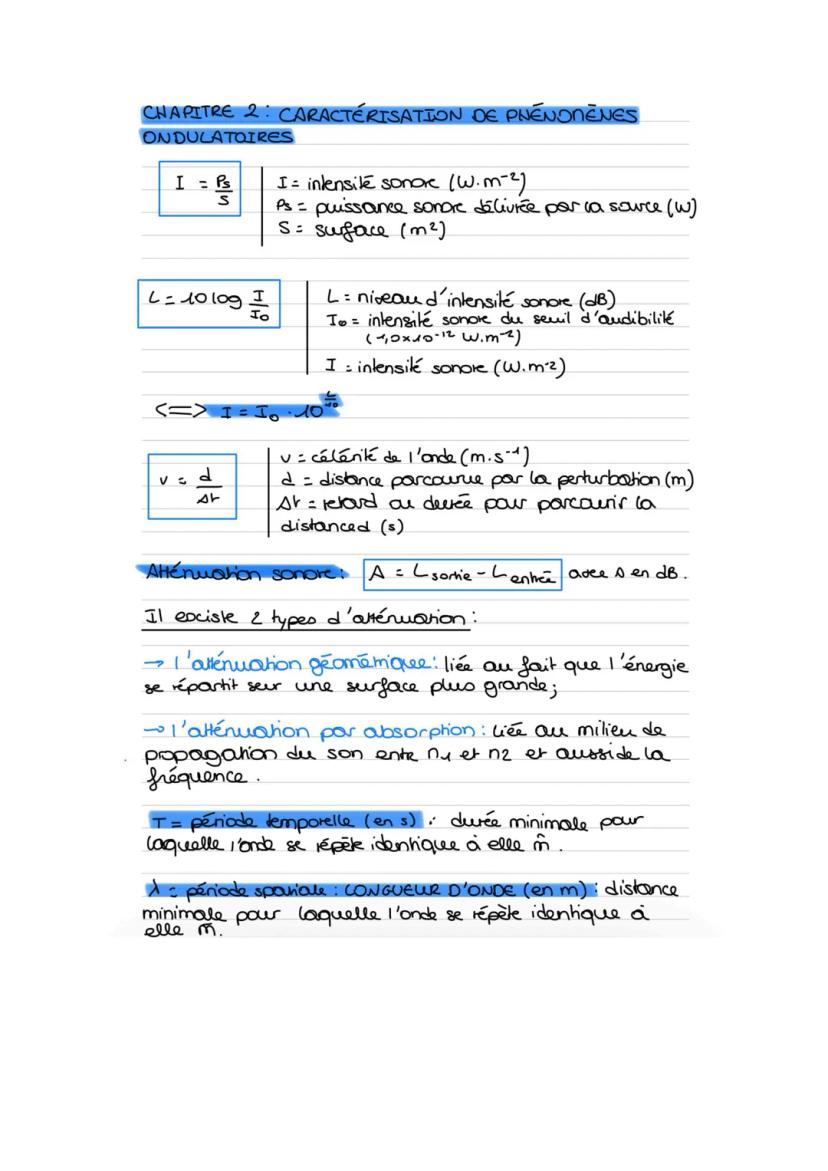 CHAPITRE 2 : CARACTÉRISATION DE PHÉNOMÈNES
ONDULATOIRES
I = Ps/S
I = intensité sonore (W.m⁻²)
Ps = puissance sonore délivrée par la source (W)
S = surface (m²)
L = 10 log I/I₀
L = niveau d'intensité sonore (dB)
I₀ = intensité sonore du seuil d'audibilité
(1,0×10⁻¹² W.m⁻²)
I = intensité sonore (W.m⁻²)
<=> I = I₀ . 10^(L/10)
v = d/Δt
v = célérité de l'onde (m.s⁻¹)
d = distance parcourue par la perturbation (m)
Δt = retard ou durée pour parcourir la
distance d (s)
Atténuation sonore : A = L sortie - L entrée avec A en dB.
Il existe 2 types d'atténuation :
→ l'atténuation géométrique : liée au fait que l'énergie
se répartit sur une surface plus grande ;
→ l'atténuation par absorption : liée au milieu de
propagation du son entre n1 et n2 et aussi de la
fréquence.
T = période temporelle (en s) : durée minimale pour
laquelle l'onde se répète identique à elle m̂.
λ = période spatiale : LONGUEUR D'ONDE (en m) : distance
minimale pour laquelle l'onde se répète identique à
elle m̂.